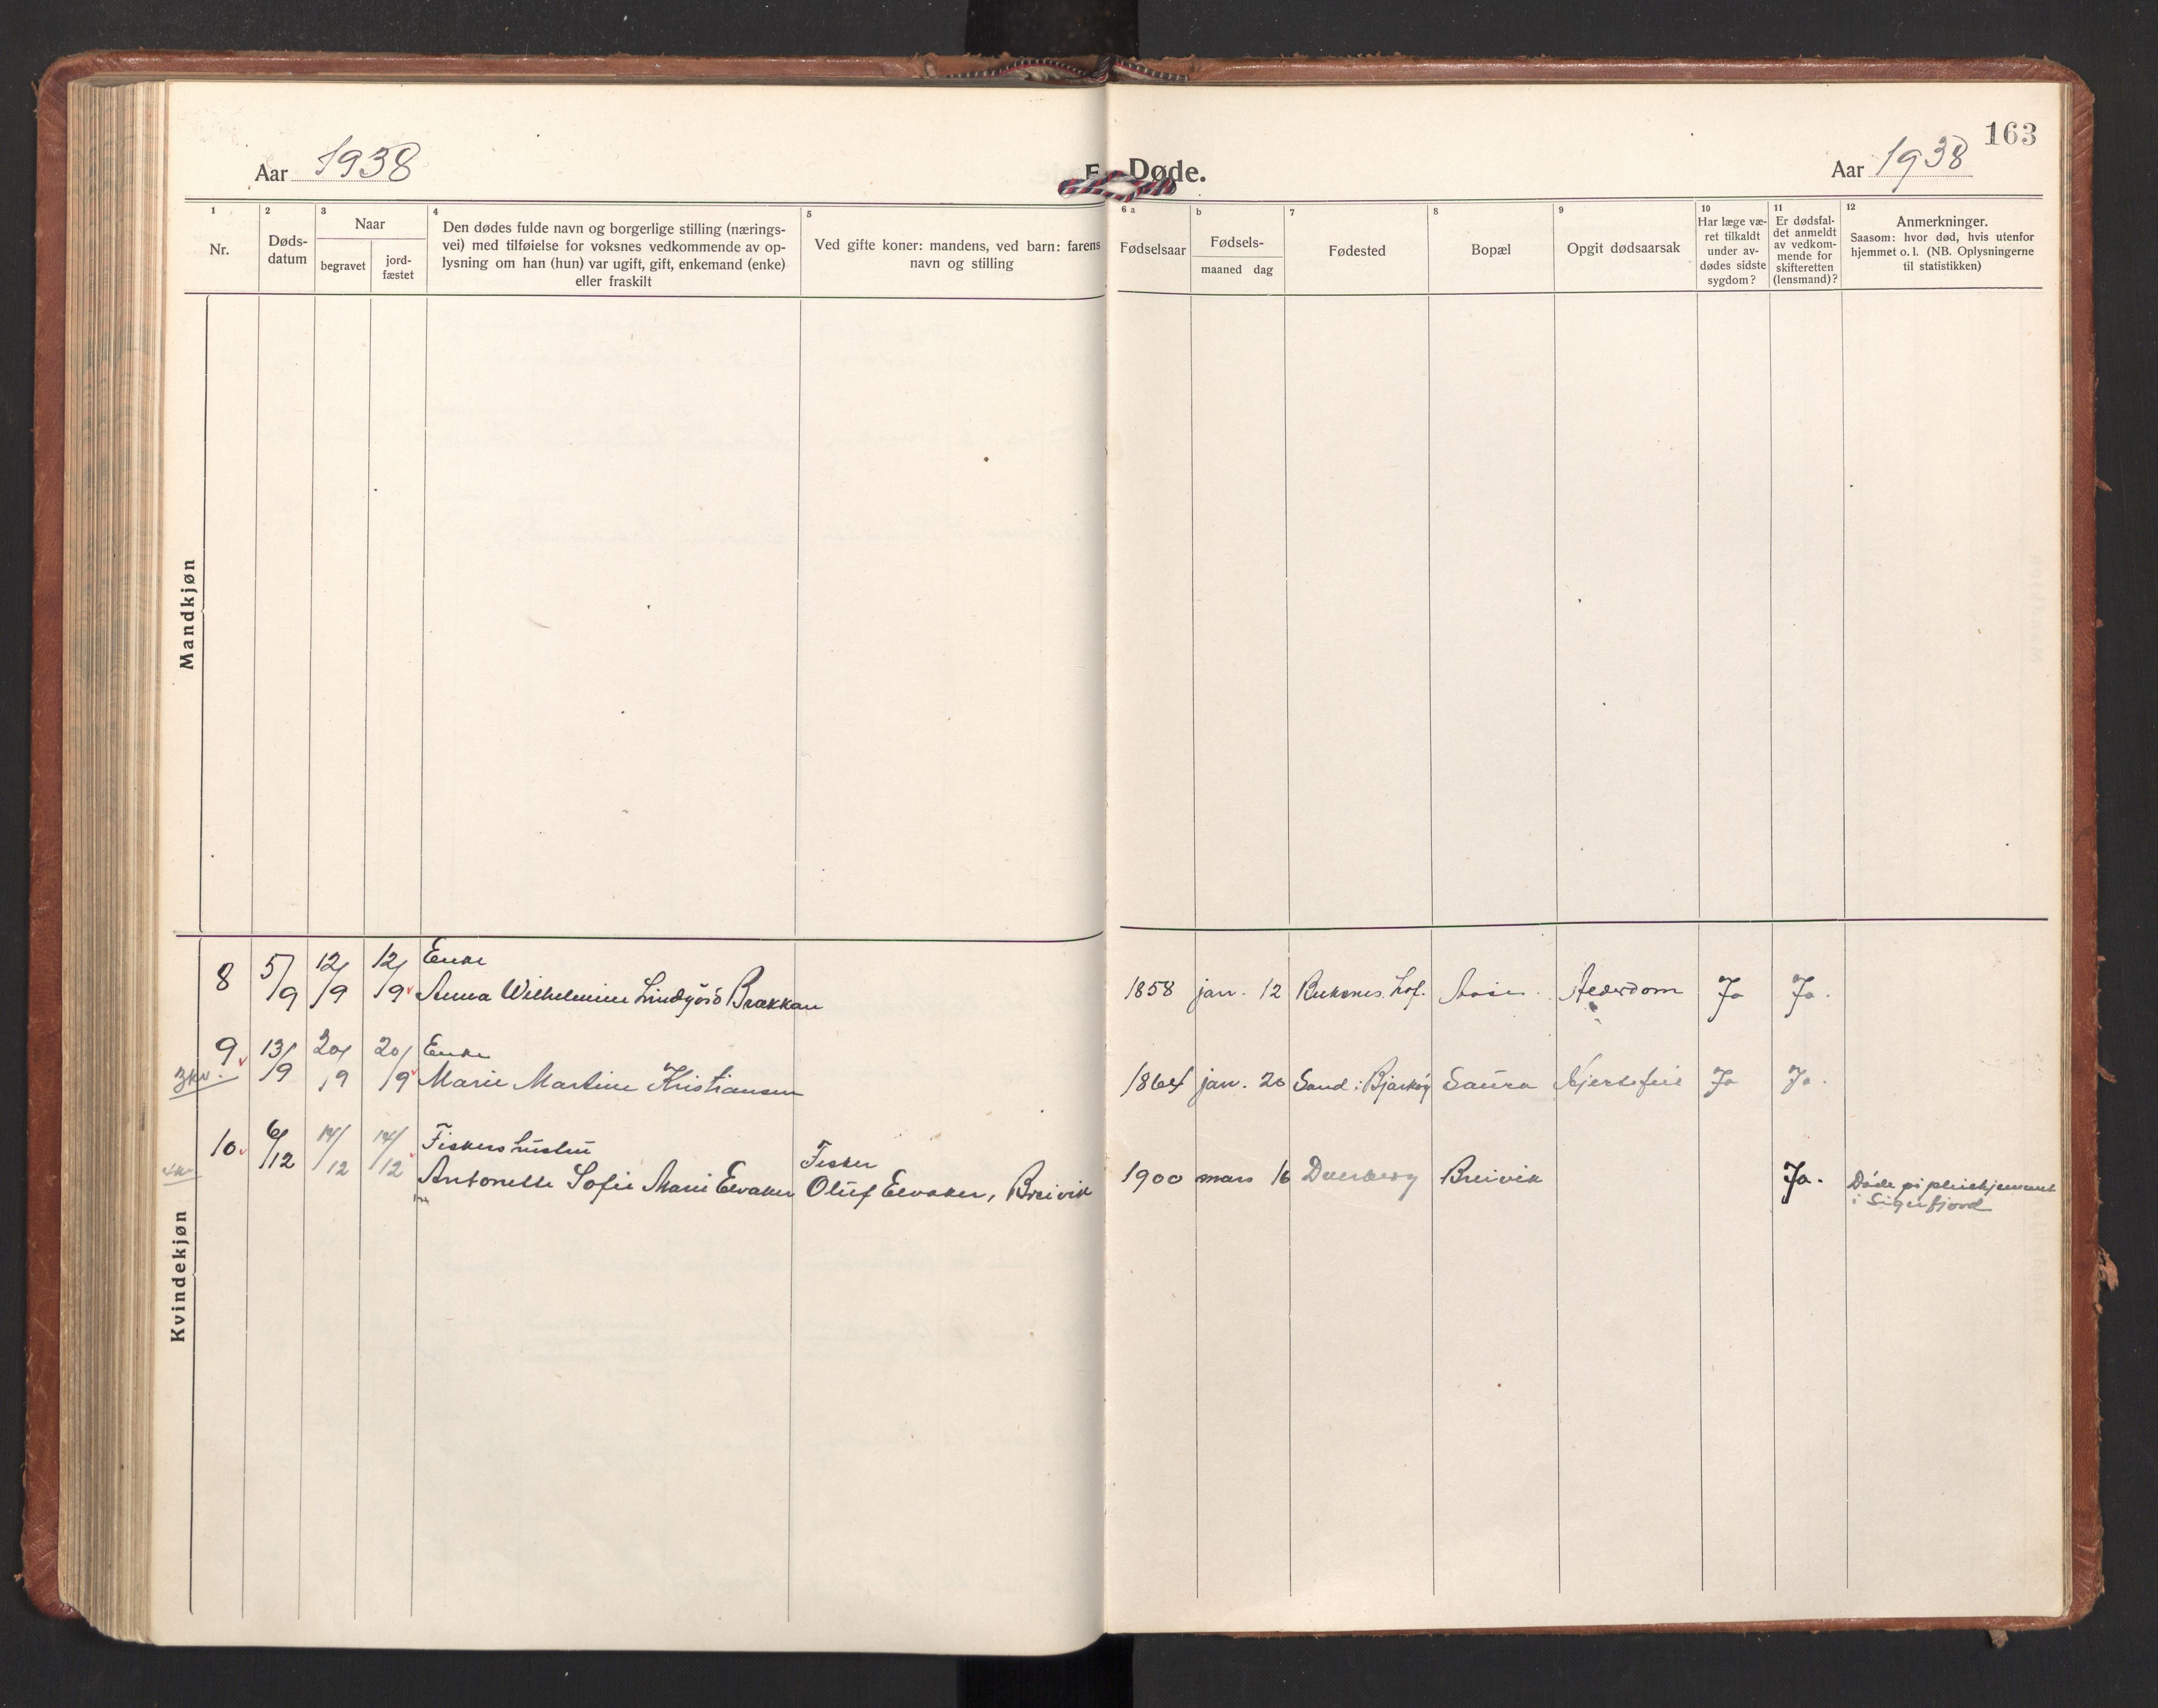 163
Aar 1938
E. Døde.
Aar 1938
1
Nr.
2
Døds-
datum
3
Naar
begravet
jord-
fæstet
4
Den dødes fulde navn og borgerlige stilling (nærings-
vei) med tilføielse for voksnes vedkommende av op-
lysning om han (hun) var ugift, gift, enkemand (enke)
eller fraskilt
5
Ved gifte koner: mandens, ved barn: farens
navn og stilling
6 a
Fødselsaar
b
Fødsels-
maaned dag
7
Fødested
8
Bopæl
9
Opgit dødsaarsak
10
Har læge væ-
ret tilkaldt
under av-
dødes sidste
sygdom?
11
Er dødsfal-
det anmeldt
av vedkom-
mende for
skifteretten
(lensmand)?
12
Anmerkninger.
Saasom: hvor død, hvis utenfor
hjemmet o. l. (NB. Oplysningerne
til statistikken)
Mandkjøn
Kvindekjøn
8 5/9 12/9 12/9 Enke
Anna Wilhelmine Brækkan
1858 jan. 12 Lof. Alderdom Ja Ja.
9 13/9 20/9 20/9 Enke
3 kv. Marie Martine Kristiansen
1864 jan. 20 Sand i Bjarkøy Saura Hjertefeil Ja Ja.
10. 6/12 14/12 14/12 Fiskers hustru
Antonette Sofie Marie Elvaker
Fisker
Oluf Elvaker, Breivik
1900 mars 16 Dverberg Breivik Ja. Døde på pleiehjemmet
i Sigerfjord